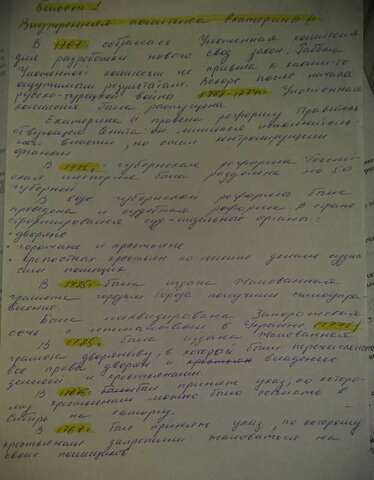 Внутренняя политика Екатерины II
В 1767 собралась Уложенная комиссия
для разработки нового свод закон. Работа
Уложенной комиссии не привела к каким-то
ощутимым результатам. Вскоре после начала
русско-турецкой войны Уложенная
комиссия была распущена
Екатерина II провела реформу Правитель
ствующего Сената: он лишился исполнитель
ной власти, но стал контролирующим
органом
В 1775г. губернская реформа. Россий
ская империя была разделена на 50
губерний
В ходе губернской реформы была
проведена и судебная реформа. В стране
органы:
• дворяне
• горожане и
• крепостных крестьян по-мнению делами судил
сам помещик
В 1785г. была издана Жалованная
грамота городам города получили самоупра
вление.
Была ликвидирована Запорожская
сечь и в Украине
В 1785г. была издана Жалованная
грамота дворянству, в которой были перечислены
все права дворян о владение
землей и крестьянами.
В был принят указ, по которо
му крестьянам можно было сослать в
Сибирь на каторгу.
В 1767г. был принят указ, по которому
крестьянам запретили жаловаться на
своих помещиков